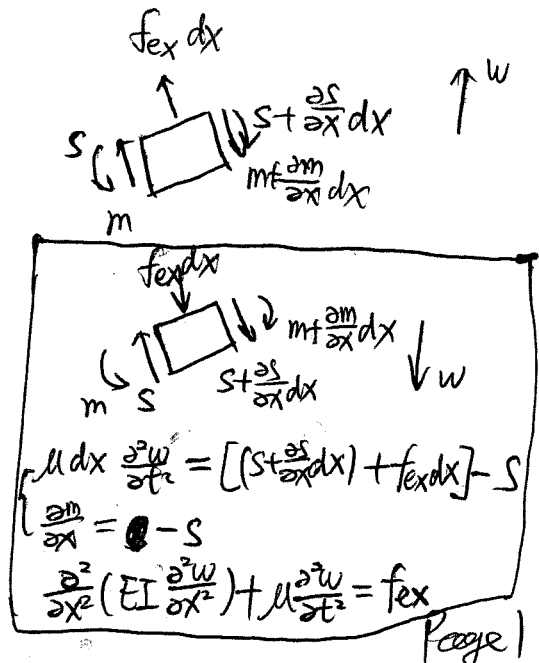 f_ex dx
w
S
S+∂S/∂x dx
m+∂m/∂x dx
m
f_ex dx
m+∂m/∂x dx
S+∂S/∂x dx
w
m S
μdx ∂²w/∂t² = [(S+∂S/∂x dx)+f_ex dx]-S
∂m/∂x = -S
∂²/∂x² (EI ∂²w/∂x²)+μ∂²w/∂t² = f_ex
Page 1